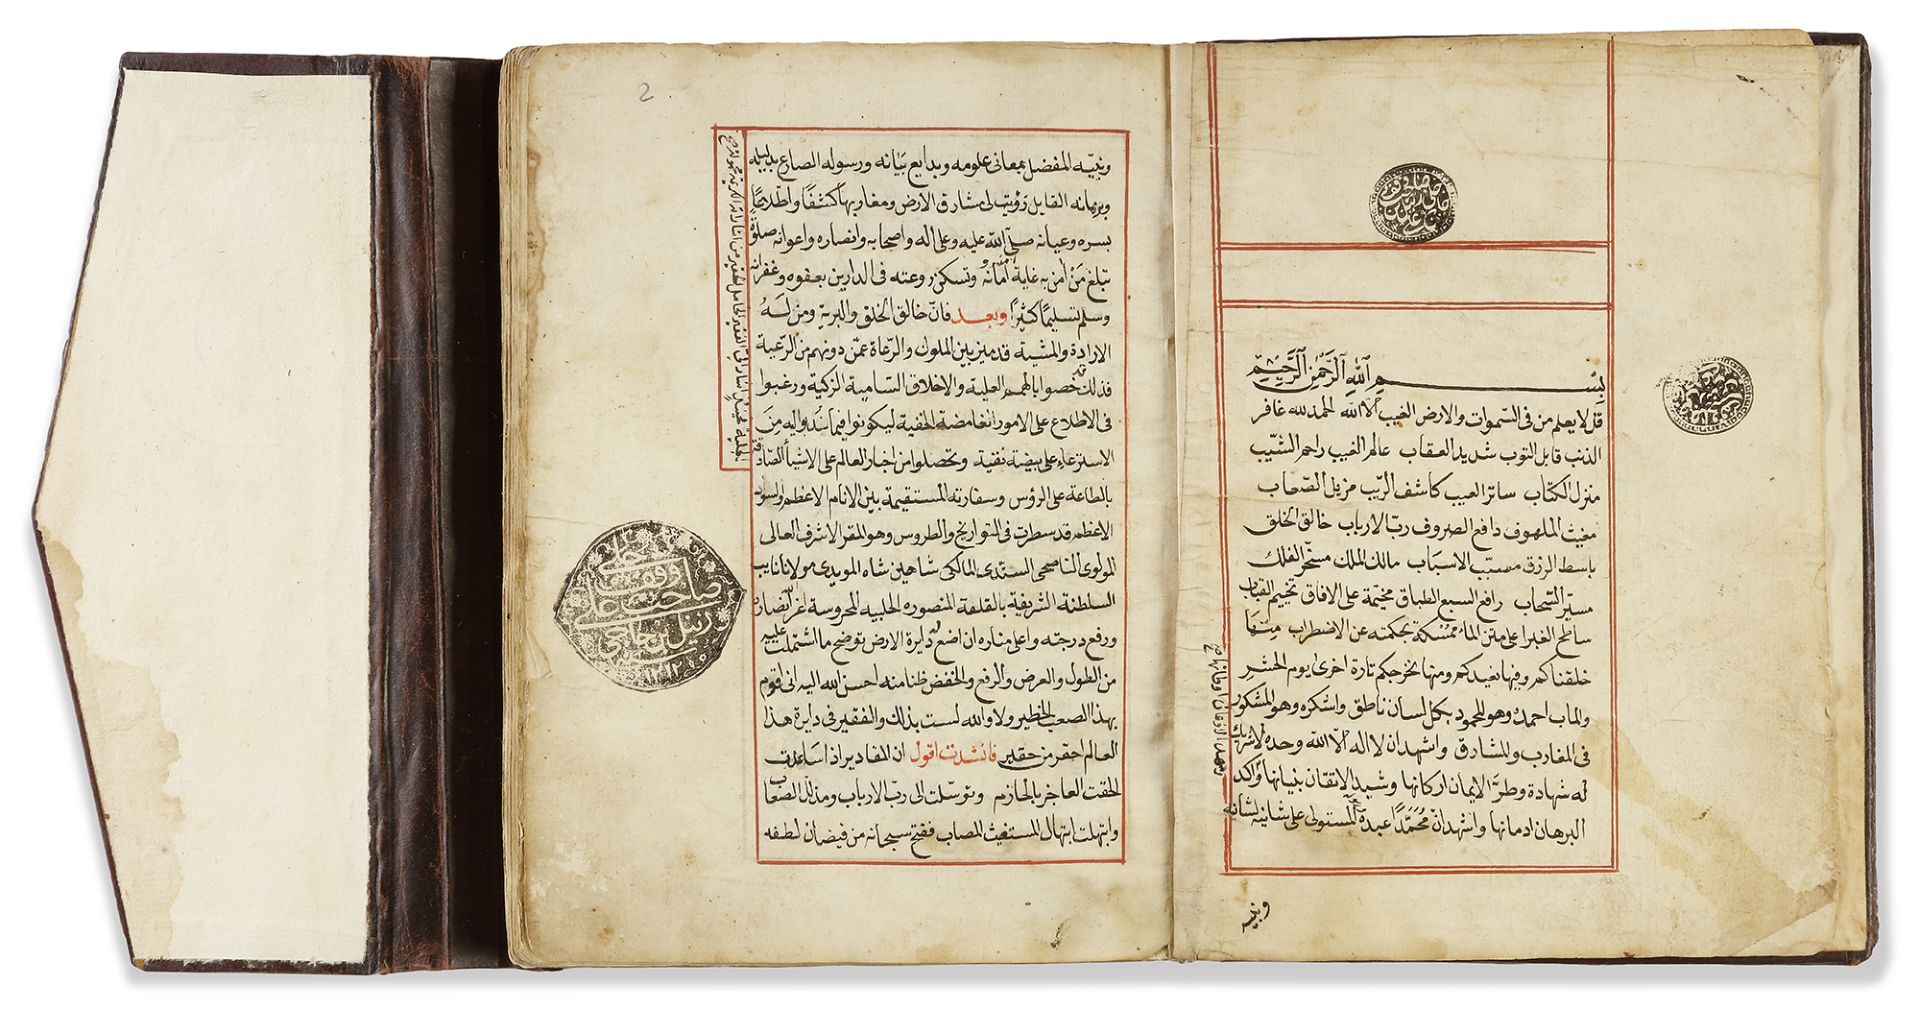 بسم الله الرحمن الرحيم
قل لا يعلم من فى السموات والارض الغيب الا الله الحمد لله غافر
الذنب قابل التوب شديد العقاب عالم الغيب راحم الشيب
منزل الكتاب ساتر العيب كاشف الريب مزيل الصعاب
مغيث الملهوف دافع الصروف رب الارباب خالق الخلق
باسط الرزق مسبب الاسباب مالك الملك مسخر الفلك
مسير السحاب رافع السبع الطباق مخيمة على الافاق تخييم القباب
ساطح الغبرا على متن الماء ممسكة بحكمته عن الاضطراب منها
خلقناكم وفيها نعيدكم ومنها نخرجكم تارة اخرى ليوم الحشر
والماب احمده وهو المحمود بكل لسان ناطق واشكره وهو المشكور
فى المغارب والمشارق واشهد ان لا اله الا الله وحده لا شريك
له شهادة وطد الايمان اركانها وشيد الاتقان بنيانها واكد
البرهان ادمانها واشهد ان محمدا عبده المستولى على شانيه لشانه
ونبيه
2
ونبيه المفضل بمعانى علومه وبدايع بيانه ورسوله الصادع بدليله
وبرهانه القايل زويت لى مشارق الارض ومغاربها كشفا واطلاعا
بسره وعيانه صلى الله عليه وعلى اله واصحابه وانصاره واعوانه صلوة
تبلغ من امن به غاية امانه وتسكن روعته فى الدارين بعفوه وغفرانه
وسلم تسليما كثيرا وبعد فان خالق الخلق والبرية ومن له
الارادة والمشية قد ميز بين الملوك والرعاة عمن دونهم من الرعية
فذلك خصوا بالهمم العلية والاخلاق السامية الزكية ورغبوا
فى الاطلاع على الامور الغامضة الخفية ليكونوا فيما اسند اليه من
الاسترعاء على بيضة نقية وتحصلوا من اخبار العالم على الاشيا الصادقة
بالطاعة على الرؤس وسفارته المستقيمة بين الانام الاعظم والسواد
الاعظم قد سطرت فى التواريخ والطروس وهو المقر الاشرف العالى
المولوى الناصحى السندى المالكى شاهين شاه المويدى مولانا نايب
السلطنة الشريفة بالقلعة المنصوره الحلبيه المحروسة اعز الله انصاره
ورفع درجته واعلى مناره ان اضع له دايرة الارض توضح ما اشتملت عليه
من الطول والعرض والرفع والخفض ظنا منه احسن الله اليه انى اقوم
بهذا الصعب الخطير ولا والله لست بذلك والفقير فى دايرة هذا
العالم احقر من حقير فانشدت اقول ان المقادير اذا ساعدت
الحقت العاجز بالحازم وتوسلت الى رب الارباب ومذلل الصعاب
وابتهلت ابتهال المستغيث المصاب ففتح سبحانه من فيضان لطفه